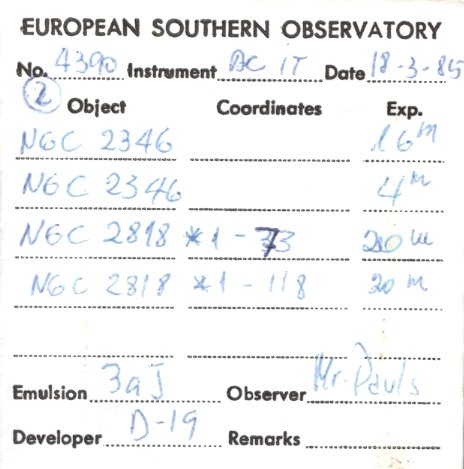 EUROPEAN SOUTHERN OBSERVATORY
No. 4390 Instrument BC IT Date 18-3-85
2 Object Coordinates Exp.
NGC 2346 16 m
NGC 2346 4 m
NGC 2818 *1 - 73 20 m
NGC 2818 *1 - 118 20 m
Emulsion 3aJ Observer Mr. Pauls
Developer D-19 Remarks